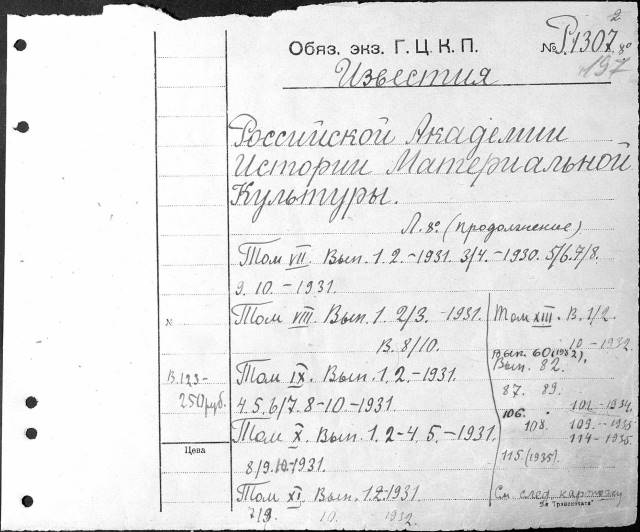 2
Обяз. экз. Г.Ц.К.П. № Р.1307 8°
197
Известия
Российской Академии
Истории Материальной
Культуры.
Л. 8° (продолжение)
Том VII. Вып. 1. 2. - 1931. 3/4. - 1930. 5/6. 7/8.
9. 10. - 1931.
Том VIII. Вып. 1. 2/3. - 1931.
В. 8/10.
Том IX. Вып. 1. 2. - 1931.
4. 5. 6/7. 8-10. - 1931.
Том X. Вып. 1. 2-4. 5. - 1931.
8/9. 10. - 1931.
Том XI. Вып. 1. 2. 1931.
7/9. 10. 1932.
Том XIII. В. 1/2.
10 - 1932.
Вып. 60 (1932).
Вып. 82.
87. 89.
106. 102 - 1934.
108. 109. - 1935
114 - 1935
115 (1935).
См след. карточку
№
В. 123-
250 руб.
Цена